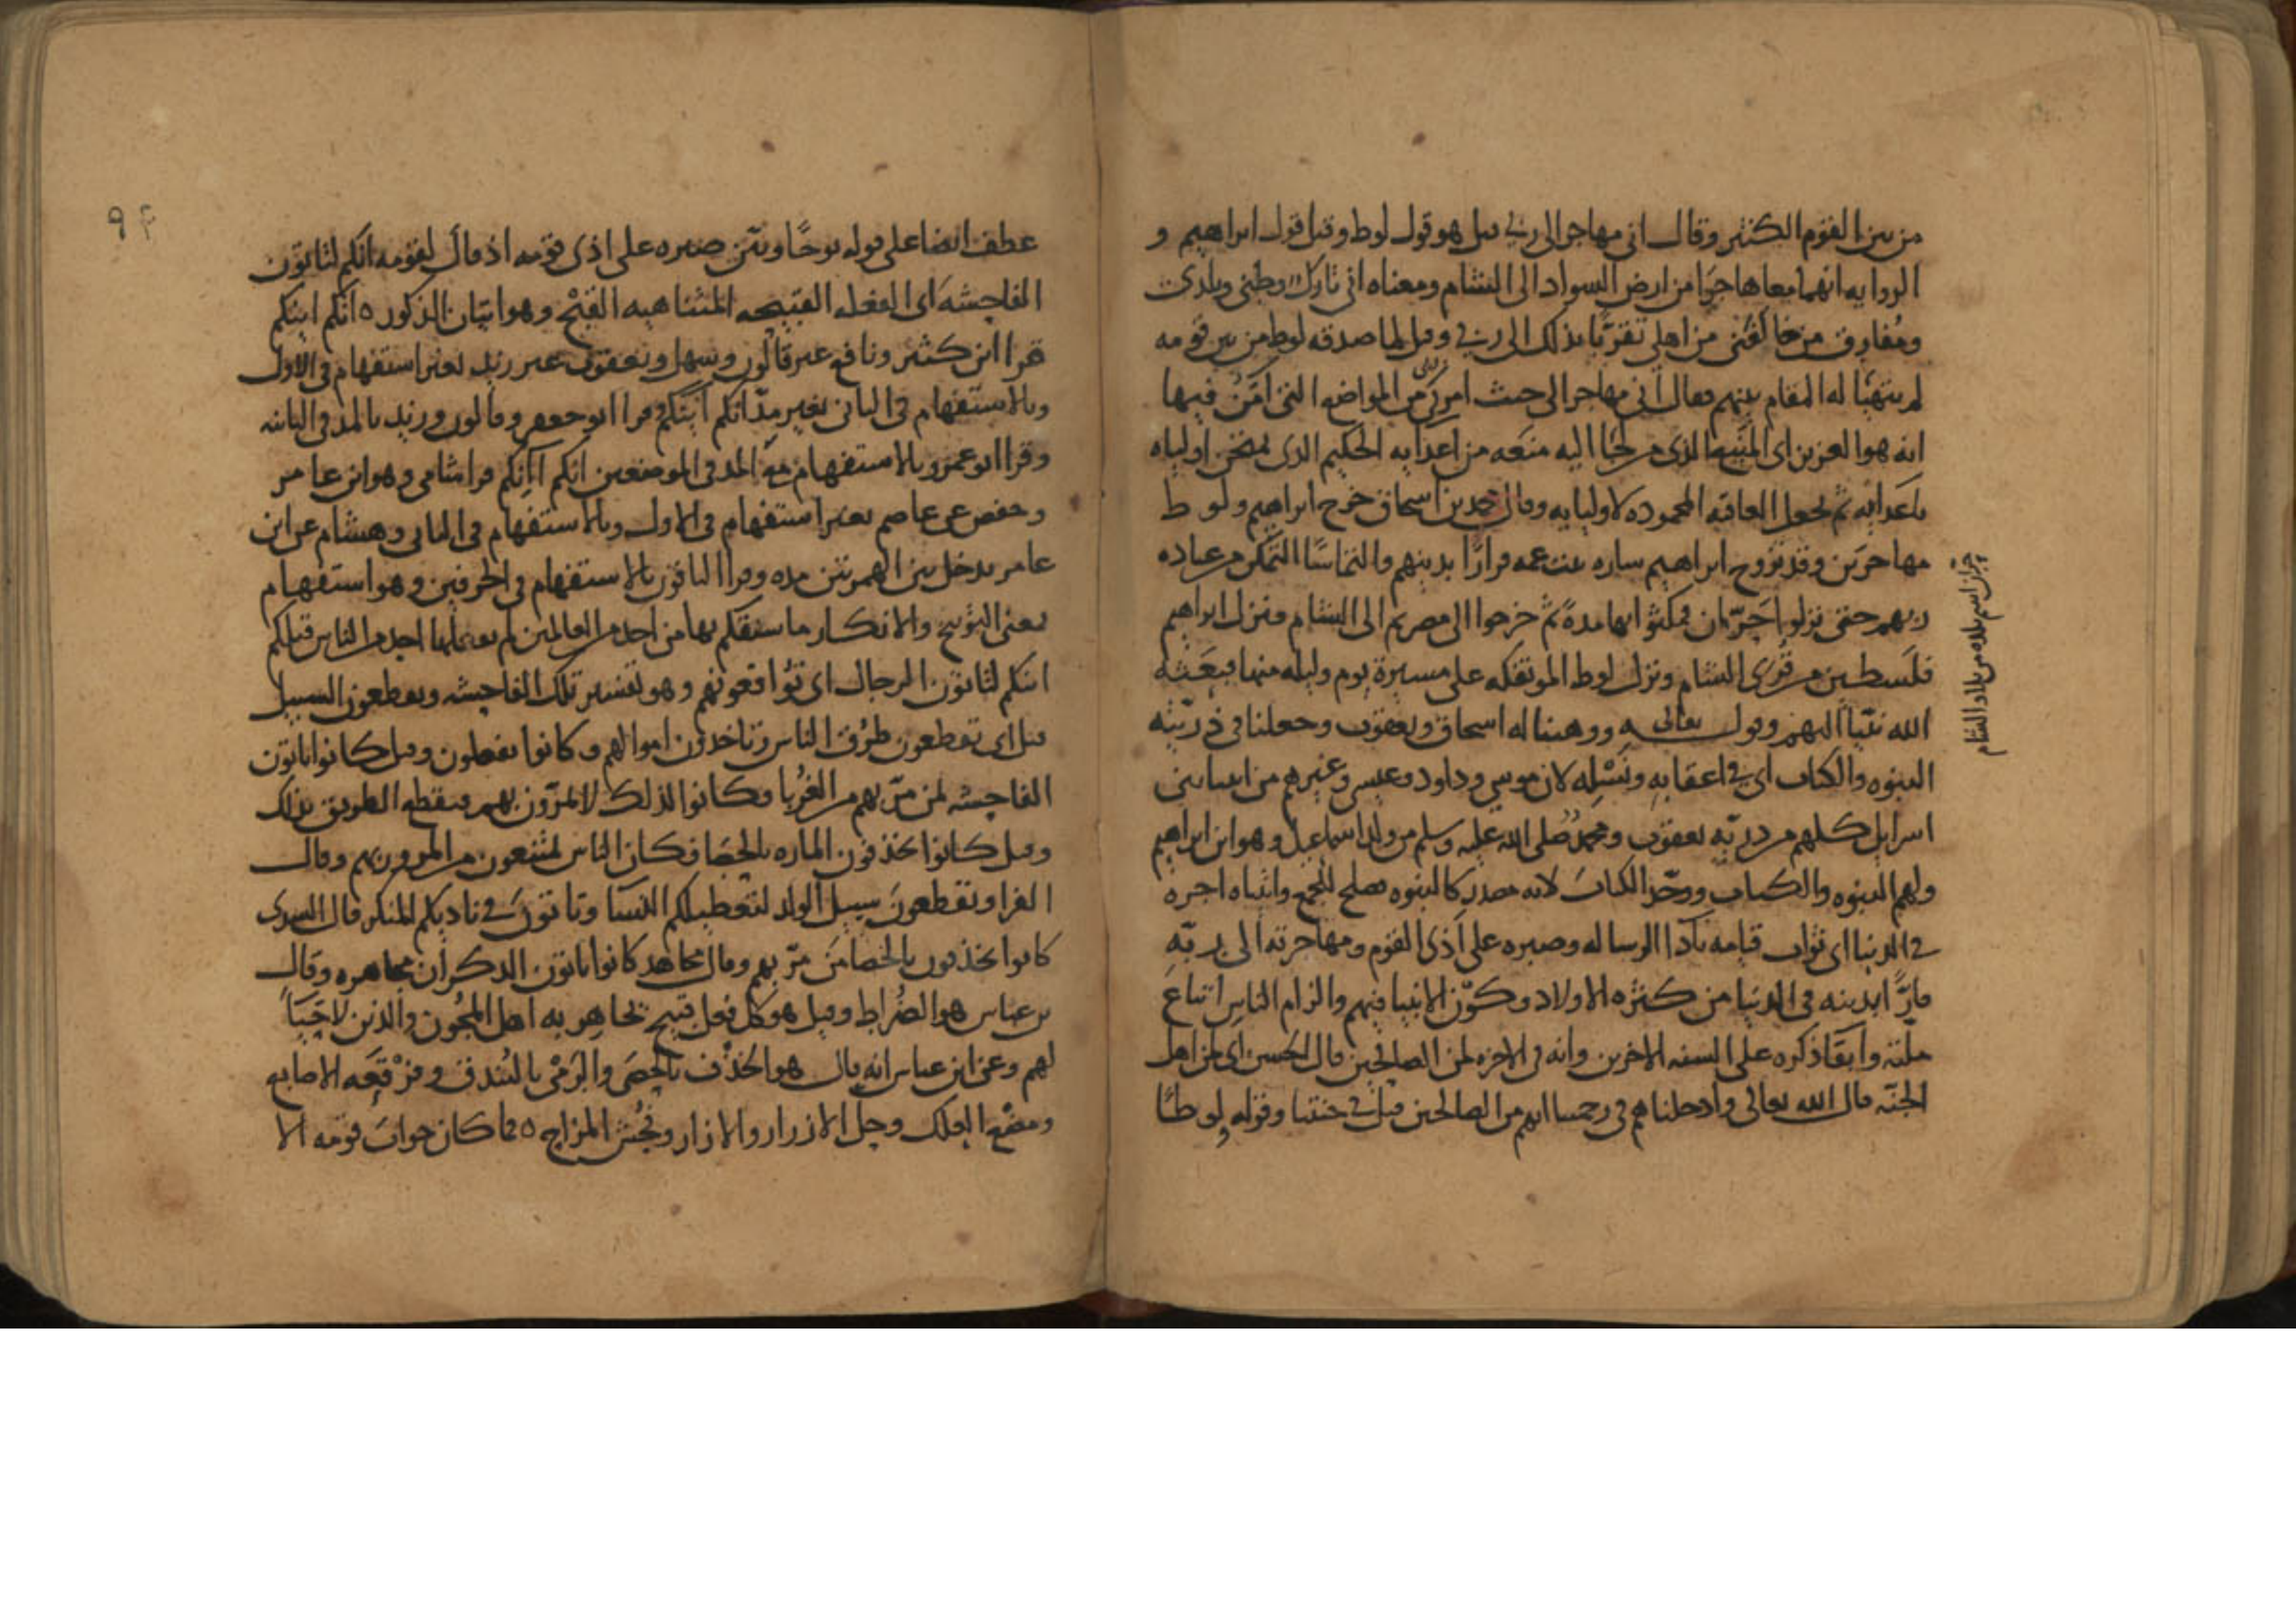 من بين القوم الكثير وقال اني مهاجر الى ربي قيل هو قول لوط وقيل قول ابراهيم و
الروايه انهما معا هاجرا من ارض السواد الى الشام ومعناه اني تارك وطني وبلدى
ومفارق من خالفني من اهلي تقربا بذلك الى ربي وقيل لما صدقه لوط من بين قومه
لم يتهيا له المقام بينهم فقال اني مهاجر الى حيث امرني ربي من المواضع التي امن فيها
انه هو العزيز اى المنيع الذى من لجا اليه منعه من اعدايه الحكيم الذى اولياه
باعدايه ثم يجعل العاقبه المحموده لاوليايه وقال محمد بن اسحاق خرج ابراهيم ولوط
مهاجرين وقد تزوج ابراهيم ساره بنت عمه فرارا بدينهم والتماسا التمكن من عباده
ربهم حتى نزلوا حران فمكثوا بها مدة ثم خرجوا الى مصر ثم الى الشام ونزل ابراهيم
فلسطين من قرى الشام ونزل لوط الموتفكه على مسيرة يوم وليله منها فبعثه
الله نبيا اليهم وقوله تعالى ووهبنا له اسحاق ويعقوب وجعلنا في ذريته
النبوه والكتاب اى في اعقابه ونسله لان موسى وداود وعيسى وغيرهم من انبيا بني
اسرايل كلهم من ذريه يعقوب ومحمد صلى الله عليه وسلم من ولد اسماعيل وهو ابن ابراهيم
ولهم النبوه والكتاب ووحد الكتاب لانه مصدر كالنبوه يصلح للجمع واتيناه اجره
في الدنيا اى ثواب قيامه بادا الرساله وصبره على اذى القوم ومهاجرته الى ربه
فارا بدينه في الدنيا من كثره الاولاد وكون الانبيا فيهم والزام الناس اتباع
ملته وابقا ذكره على السنه الاخرين وانه في الاخره لمن الصالحين قال الحسن اى لمن اهل
الجنه قال الله تعالى وادخلناهم في رحمتنا انهم من الصالحين قيل في جنتنا وقوله لوطا
حران اسم بلده من بلاد الشام
عطف ايضا على قوله نوحا وبين صبره على اذى قومه اذ قال لقومه انكم لتاتون
الفاحشه اى الفعله القبيحه المتناهيه القبح وهو اتيان الذكور ٥ انكم اينكم
قرا ابن كثير ونافع غير قالون وسهل ويعقوب غير زيد بغير استفهام في الاول
وبالاستفهام في الثاني بغير مد انكم اينكم قرا ابو جعفر وقالون وزيد بالمد في الثانيه
وقرا ابو عمرو بالاستفهام مع المد في الموضعين انكم آانكم قرا شامي وهو ابن عامر
وحفص عن عاصم بغير استفهام في الاول وبالاستفهام في الثاني وهشام عن ابن
عامر يدخل بين الهمزتين مده وقرا الباقون بالاستفهام في الحرفين وهو استفهام
بمعنى التوبيخ والانكار ما سبقكم بها من احد من العالمين لم يعملها احد من الناس قبلكم
اينكم لتاتون الرجال اى تواقعونهم وهو تفسير تلك الفاحشه وتقطعون السبيل
قيل اى تقطعون طرق الناس وتاخذون اموالهم وكانوا يفعلون وقيل كانوا ياتون
الفاحشه لمن مر بهم من الغربا وكانوا لذلك لا يمرون بهم فينقطع الطريق بذلك
وقيل كانوا يخذفون الماره بالحصا فكان الناس يمتنعون من المرور بهم وقال
الفرا وتقطعون سبيل الولد لتعطيلكم النسا وتاتون في ناديكم المنكر قال السدى
كانوا يخذفون بالحصا من مر بهم وقال مجاهد كانوا ياتون الذكران مجاهره وقال
بن عباس هو الضراط وقيل هو كل فعل قبيح يجاهر به اهل المجون والذين لا حيا
لهم وعن ابن عباس انه قال هو الخذف بالحصى والرمى بالبندق وفرقعه الاصابع
ومضغ العلك وحل الازرار والازار وفحش المزاح ٥ فما كان جواب قومه الا